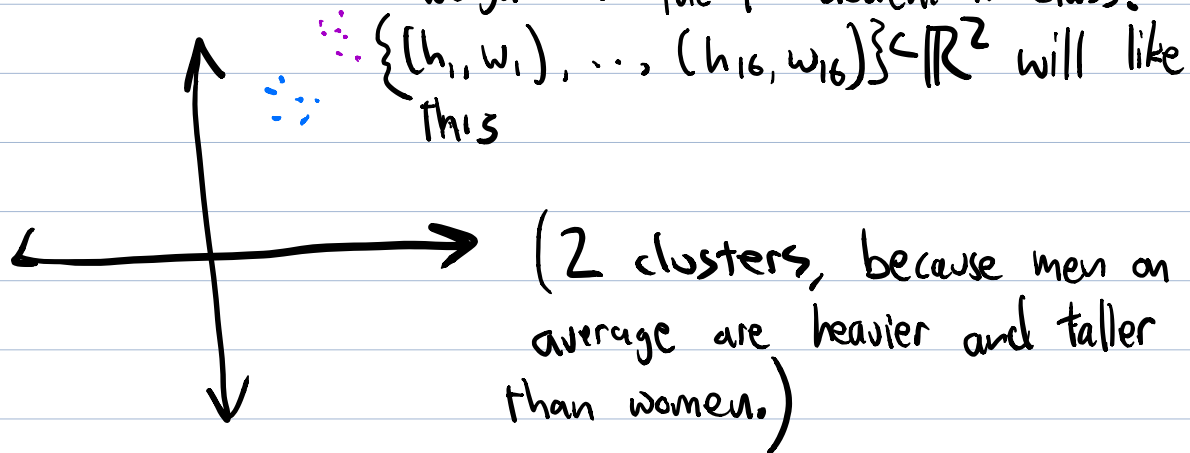 {(h₁, w₁), ..., (h₁₆, w₁₆)}⊂ℝ² will like
this
(2 clusters, because men on
average are heavier and taller
than women.)